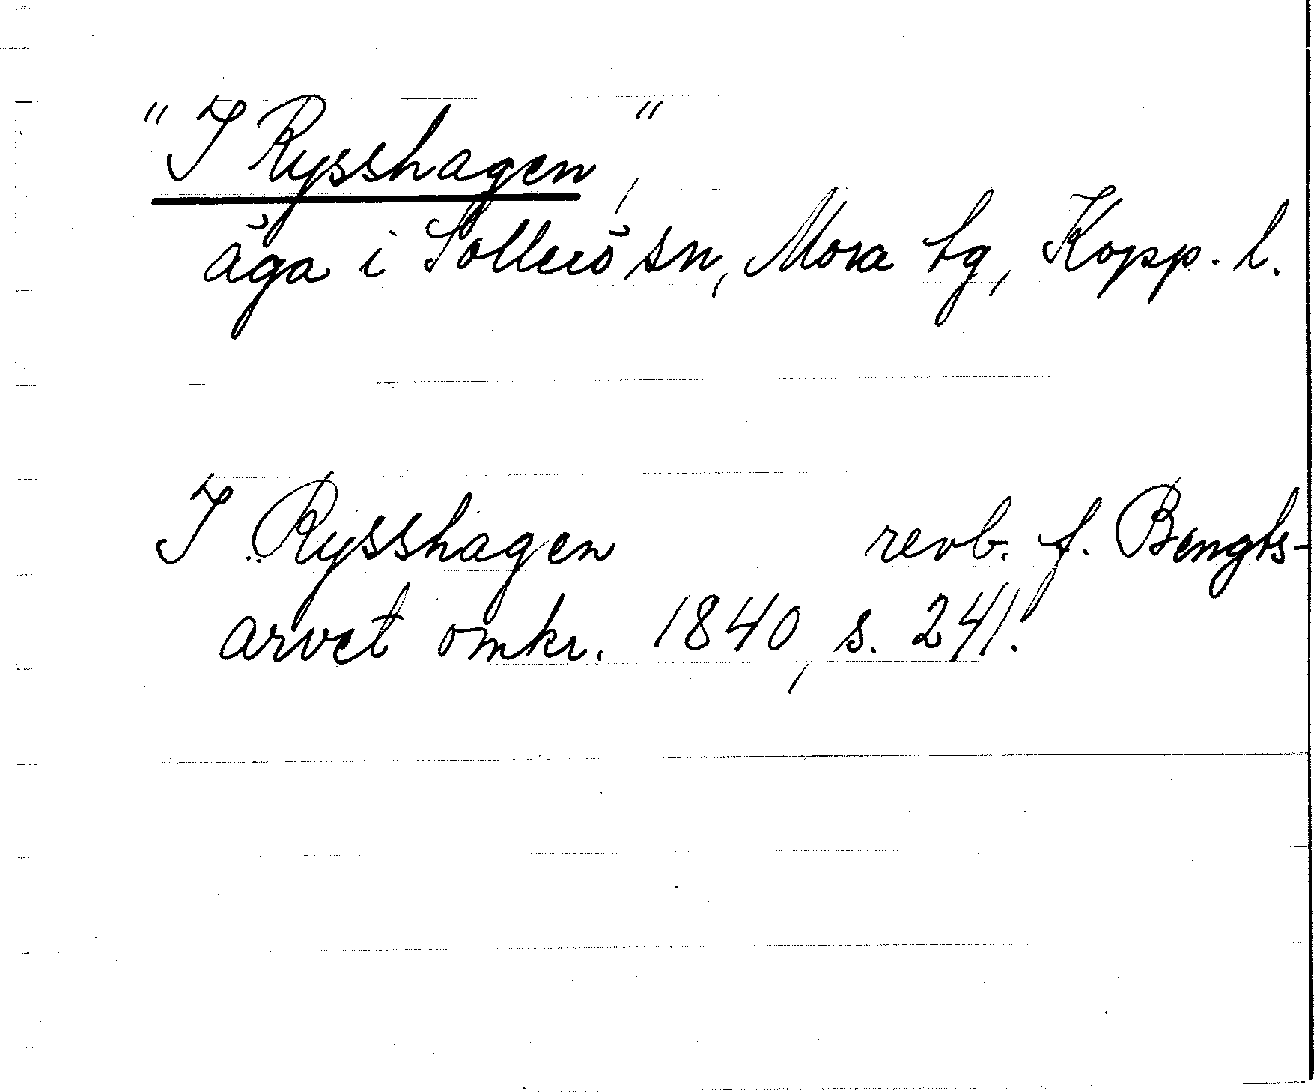 "I Rysshagen,"
äga i Sollerö sn, Mora tg, Kopp. l.
I Rysshagen revb. f. Bengts-
arvet omkr. 1840, s. 241.